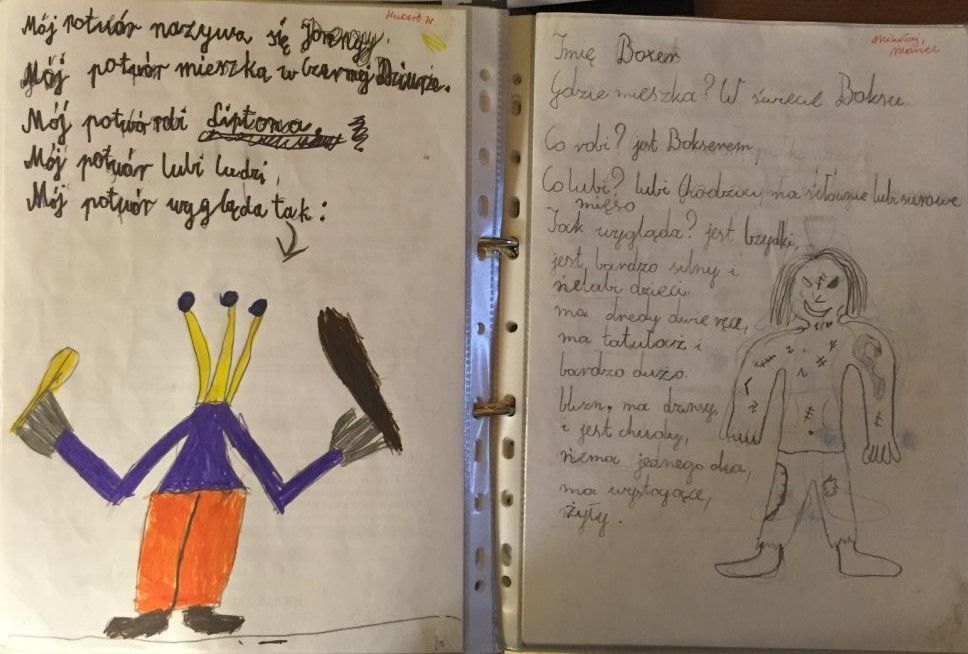 Hubert W.
Mój potwór nazywa się
Mój potwór mieszka w Czarnej Dziurze.
Mój potwór robi liptona.
Mój potwór lubi ludzi,
Mój potwór wygląda tak:
Mikołaj,
Marcel
Imię Boxem
Gdzie mieszka? W świecie Boksu.
Co robi? jest Bokserem
Co lubi? lubi Chodzicu na siłownie lubi surowe
mięso
Jak wygląda? jest bzydki,
jest bardzo silny i
nielubi dzieci.
ma dredy dwie ręce,
ma tatułaż i
bardzo dużo.
blizn, ma dziury,
i jest chudy,
niema jednego oka,
ma wystające,
żyły.